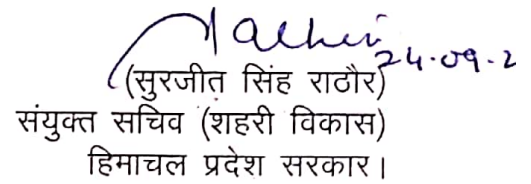 24.09.2
(सुरजीत सिंह राठौर)
संयुक्त सचिव (शहरी विकास)
हिमाचल प्रदेश सरकार।